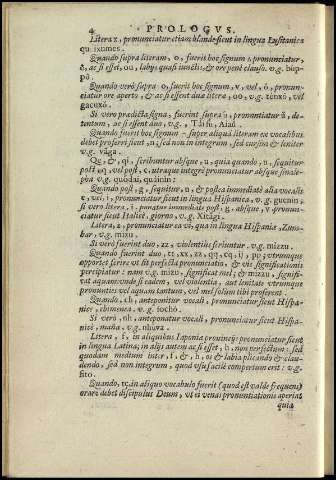 4 PROLOGVS.
Litera x, pronunciatur etiam blande sicut in lingua Lusitanica
qu ixomes.
Quando supra literam, o, fuerit hoc signum pronunciatur,
ac si esset, ou, labijs quasi iunctis, & ore penè clauso. v.g. 
Quando verò supra o, fuerit hoc signum, v, vel, ô, pronun-
ciatur ore aperto, & ac si essent duæ literæ, oo, v.g.
gacuxŏ.
Si vero prædicta signa, fuerint supra pronuntiatur
tentum, ac si essent duo, v.g. Aiaŭ
Quando fuerit hoc signum super aliquā literam ex vocalibus
debet proferri sicut, n, sed non in integrum, sed cursim & leniter
v.g. vãga.
Qe, & qi, scribuntur absque, u, quia quando, u, sequitur
post q, vel post, c, utraque integrè pronunciatur absque sinale-
pha v.g. quodai, quainin:
Quando post, g, sequitur, u, & postea immediatè alia vocalis
e, vel, i, pronunciatur sicut in lingua Hispanica, v.g. guenin;
si vero litera, i, ponatur immediatè post, g, absque, v pronun-
ciatur sicut Italicè, giorno, v.g. Xitagi.
Litera, z, pronunciatur ea vi, qua in lingua Hispania, Zumo-
bar, v.g. mizu.
Si verò fuerint duo, zz, violentius feriuntur. v.g. mizzu.
Quando fuerint duo, tt, xx, zz, qq, cq, ij, pp; vtrumque
oportet ferire vt sit perfecta pronunciatio, & vis significationis
percipiatur: nam v.g. mizu, significat mel; & mizzu, signifi-
cat aquam: unde si eadem, vel violentia, aut lenitate vtrumque
pronunties vel aquam tantùm, vel mel solum tibi proferent.
Quando, ch, anteponitur vocali, pronunciatur sicut Hispa-
nicè, chimenea. v.g. fochŏ.
Si verò, nh, anteponatur vocali, pronunciatur sicut Hispa-
nicè, maña, v.g. nhuva.
Litera, f, in aliquibus Iaponiæ provincijs pronunciatur sicut
in lingua Latina; in alijs autem ac si esset, h, non perfectum; sed
quoddam medium inter, f, & h, os & labia plicando & clau-
dendo, sed non integrum, quod vsu facilè compertum erit: v.g.
fito.
Quando, in aliquo vocabulo fuerit (quod est valde frequens)
orare debet discipulus Deum, vt ei venæ pronuntiationis aperiat
quia